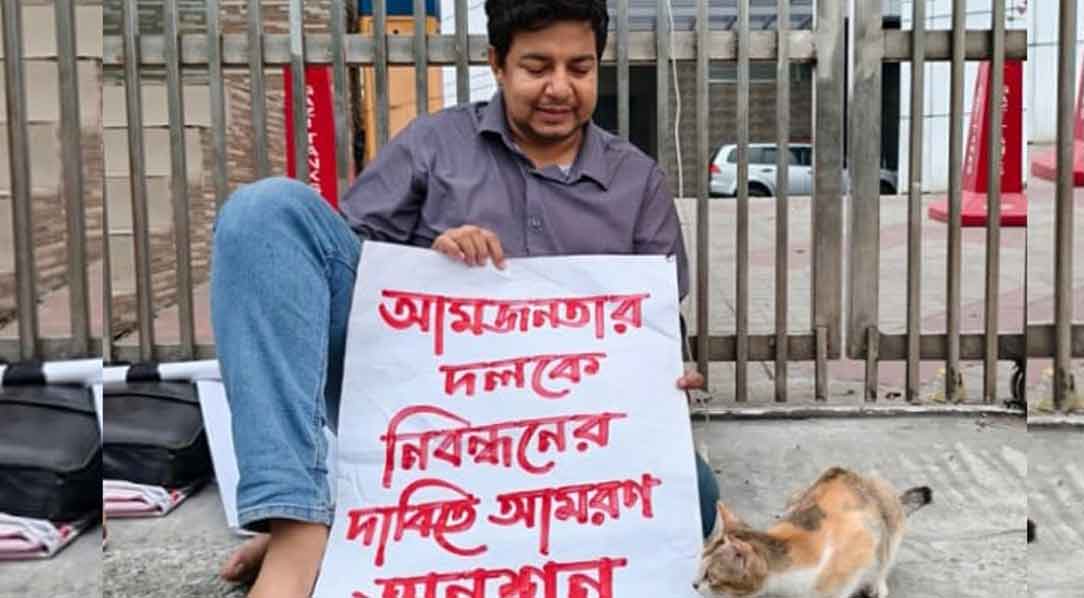 আমজনতার
দলকে
নিবন্ধনের
দাবিতে আমরণ
অনশন